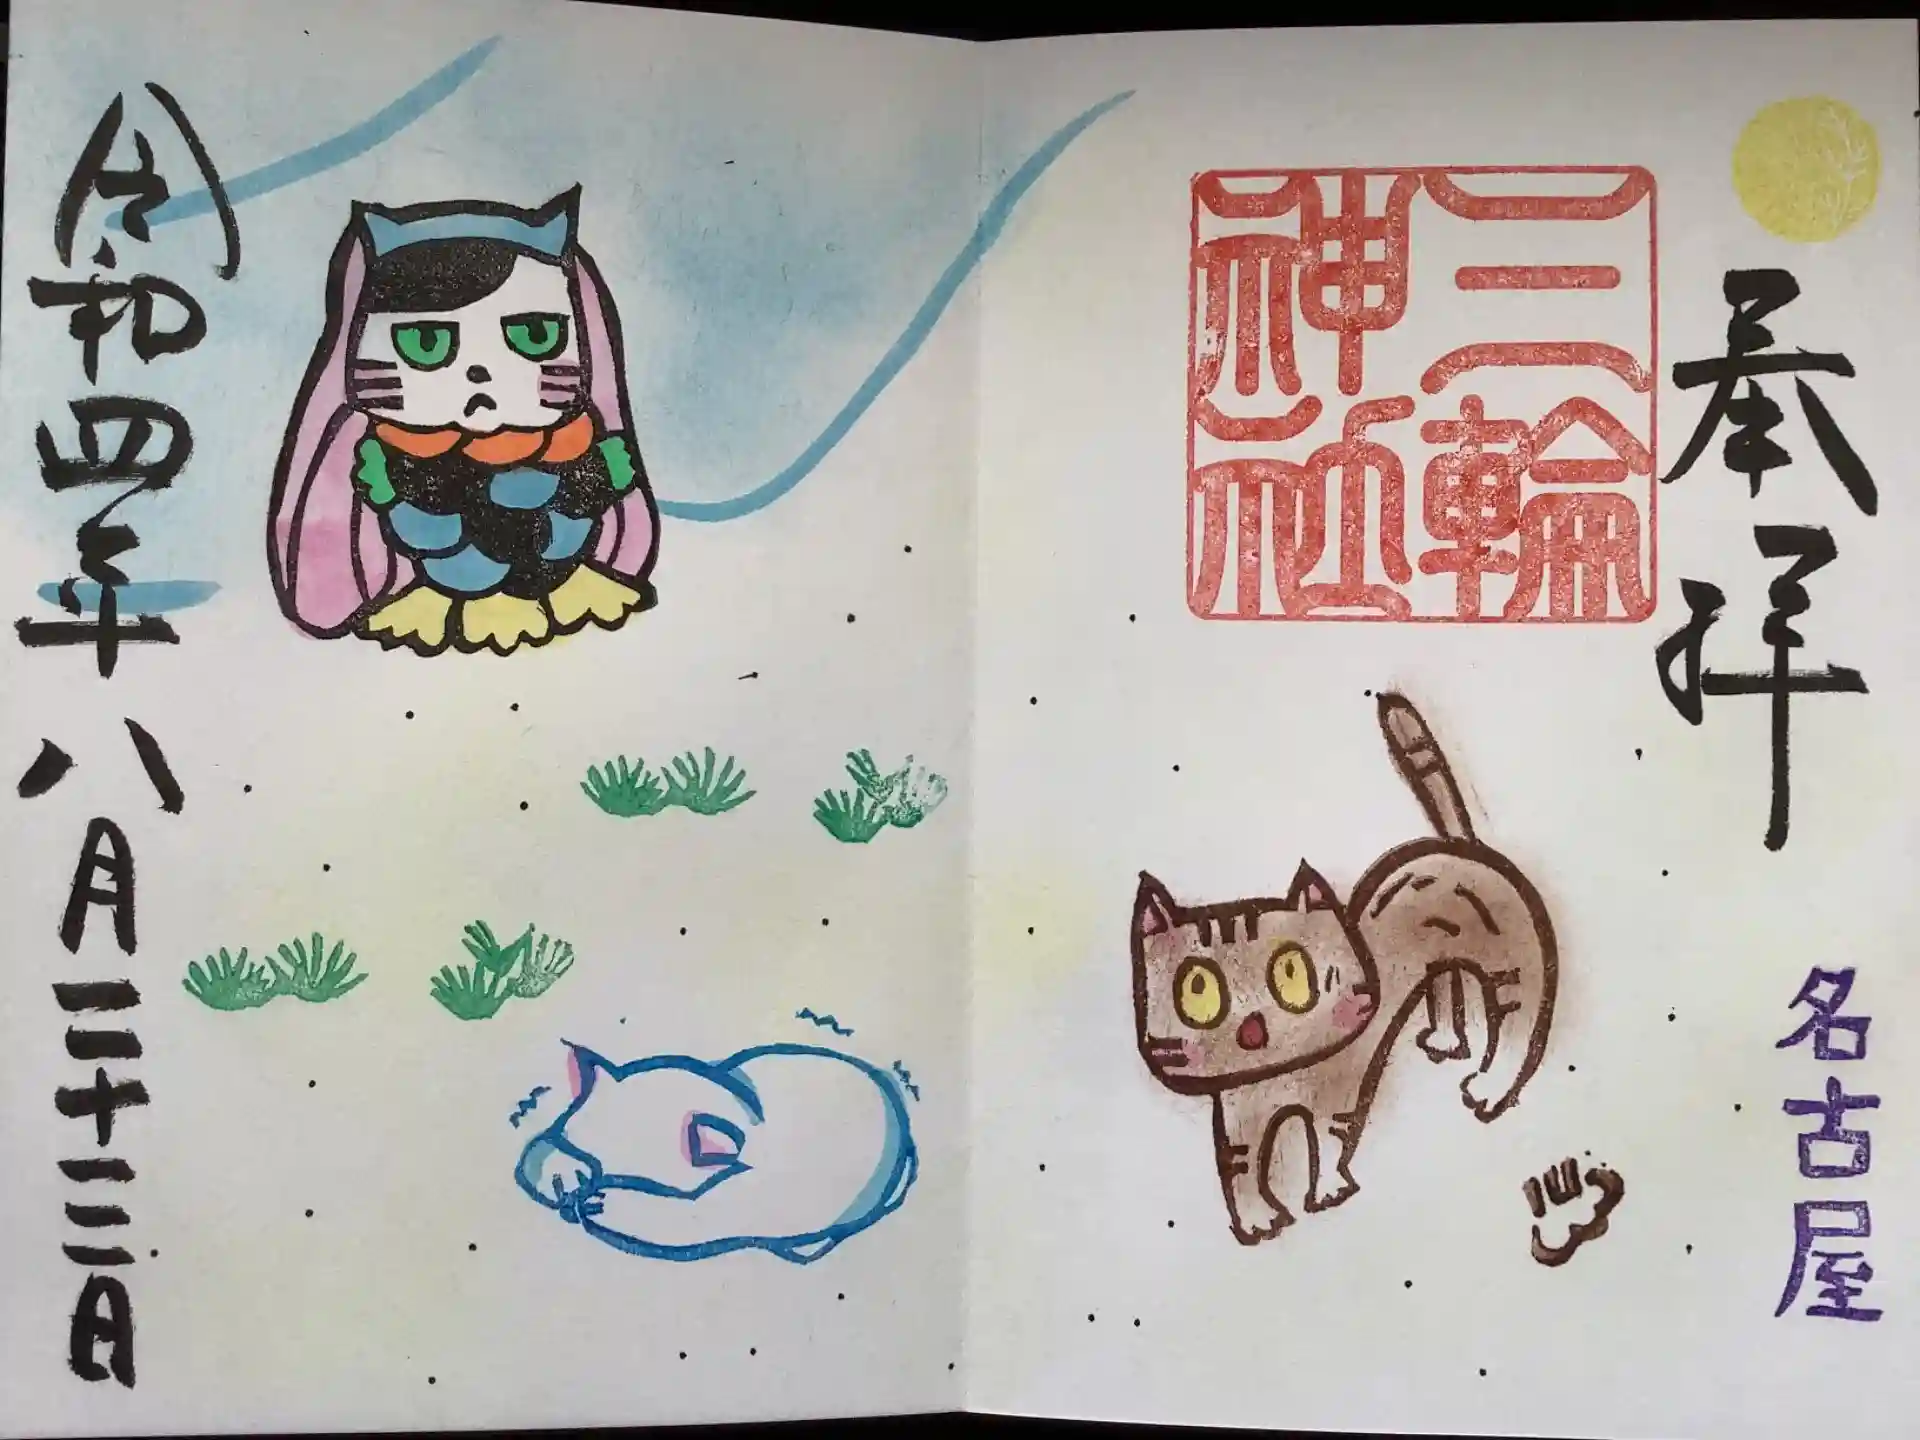 奉拝
三輪
神社
名古屋
令和四年八月二十二日